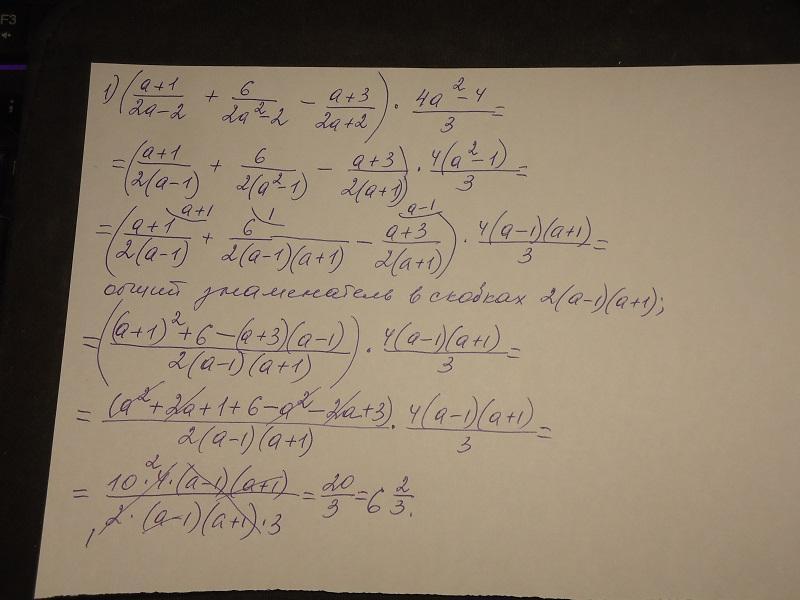 F3
1) ((a+1)/(2a-2) + 6/(2a²-2) - (a+3)/(2a+2)) · (4a²-4)/3 =
= ((a+1)/(2(a-1)) + 6/(2(a²-1)) - (a+3)/(2(a+1))) · 4(a²-1)/3 =
a+1 1 a-1
= ((a+1)/(2(a-1)) + 6/(2(a-1)(a+1)) - (a+3)/(2(a+1))) · 4(a-1)(a+1)/3 =
общий знаменатель в скобках 2(a-1)(a+1);
= (((a+1)²+6-(a+3)(a-1))/(2(a-1)(a+1))) · 4(a-1)(a+1)/3 =
= (a²+2a+1+6-a²-2a+3)/(2(a-1)(a+1)) · 4(a-1)(a+1)/3 =
2
= (10·4·(a-1)(a+1))/(2·(a-1)(a+1)·3) = 20/3 = 6 2/3.